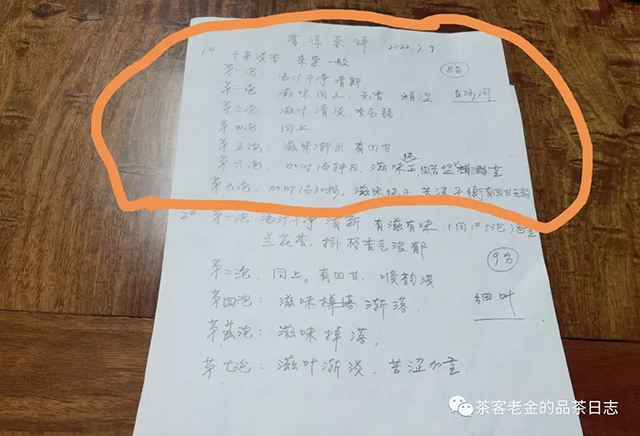 普洱茶评 2022.9.9
1# 干茶淡香 条索一般
第一泡：汤汁干净 清新 8分
第二泡：滋味同上，无香 稍涩
第三泡：滋叶清淡 香气弱
第四泡：同上
第五泡：滋味渐出 有回甘
第六泡：加时 滋味
第七泡：加时 滋味 苦涩平衡 有回甘
2# 第一泡：汤汁干净 清新 有滋有味
兰花香，掛杯香气浓郁
9分
第二泡：同上。有回甘，喉韵浅
第四泡：滋味 渐落 细叶
第五泡：滋味掉落，
第七泡：滋叶渐淡，苦涩加重
茶客老金的品茶日志